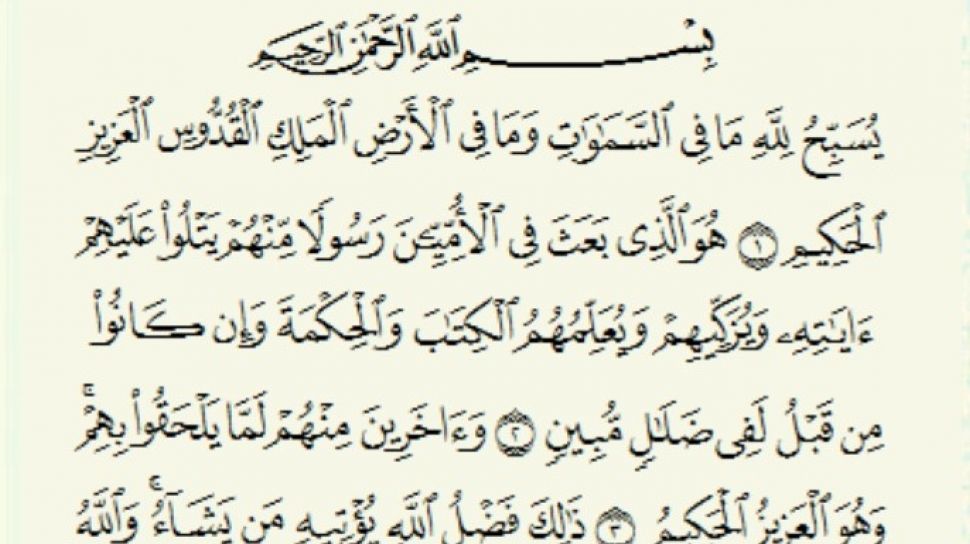 بِسْمِ ٱللَّهِ ٱلرَّحْمَٰنِ ٱلرَّحِيمِ
يُسَبِّحُ لِلَّهِ مَا فِى ٱلسَّمَٰوَٰتِ وَمَا فِى ٱلْأَرْضِ ٱلْمَلِكِ ٱلْقُدُّوسِ ٱلْعَزِيزِ
ٱلْحَكِيمِ ١ هُوَ ٱلَّذِى بَعَثَ فِى ٱلْأُمِّيِّۦنَ رَسُولًا مِّنْهُمْ يَتْلُوا۟ عَلَيْهِمْ
ءَايَٰتِهِۦ وَيُزَكِّيهِمْ وَيُعَلِّمُهُمُ ٱلْكِتَٰبَ وَٱلْحِكْمَةَ وَإِن كَانُوا۟
مِن قَبْلُ لَفِى ضَلَٰلٍ مُّبِينٍ ٢ وَءَاخَرِينَ مِنْهُمْ لَمَّا يَلْحَقُوا۟ بِهِمْ ۚ
وَهُوَ ٱلْعَزِيزُ ٱلْحَكِيمُ ٣ ذَٰلِكَ فَضْلُ ٱللَّهِ يُؤْتِيهِ مَن يَشَآءُ ۚ وَٱللَّهُ